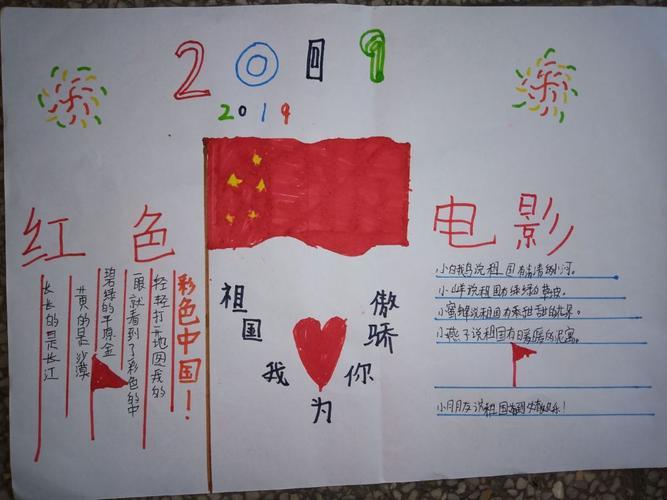 2019
2019
红色 电影
彩色中国!
轻轻打开地图我的
一眼就看到了彩色的中
碧绿的平原金
黄的是沙漠
长长的是长江
祖国
我 为 你
傲骄
小白鹅说祖国有清清的小河。
小羊说祖国有绿绿的草皮。
小蜜蜂说祖国有香甜甜的花果。
小燕子说祖国有暖暖的泥窝。
小朋友说祖国